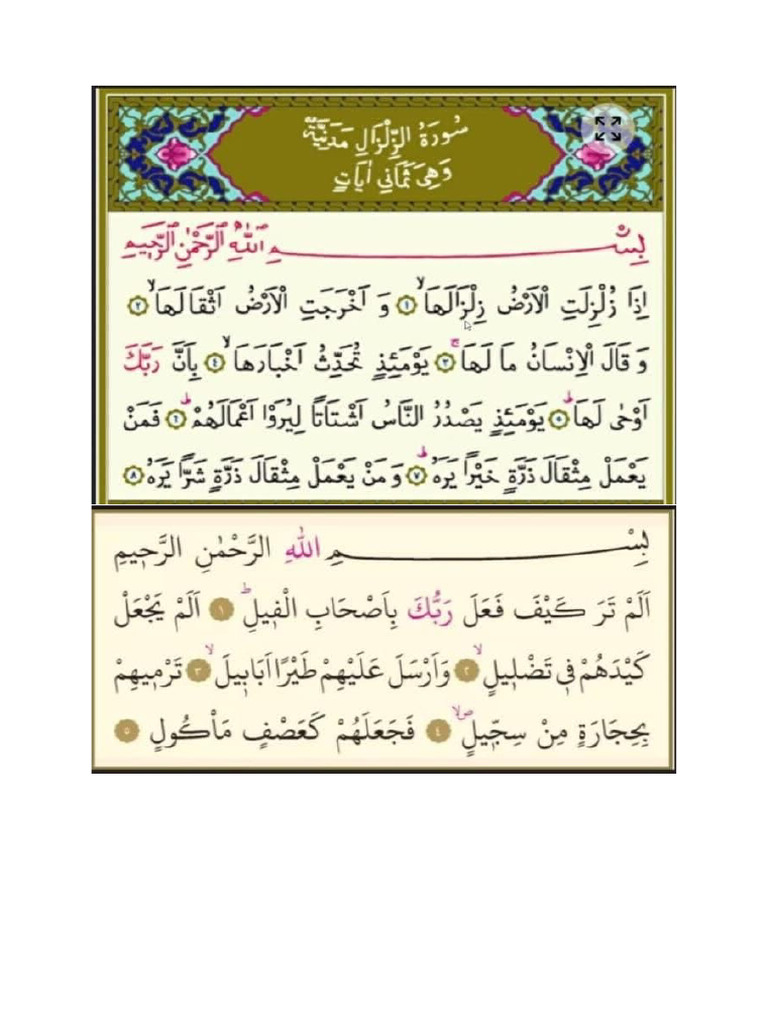 سُورَةُ الزِّلْزَالِ مَدَنِيَّةٌ
وَهِىَ ثَمَانِي اٰيَاتٍ
بِسْمِ اللّٰهِ الرَّحْمٰنِ الرَّحِيمِ
اِذَا زُلْزِلَتِ الْاَرْضُ زِلْزَالَهَاۙ ﴿١﴾ وَ اَخْرَجَتِ الْاَرْضُ اَثْقَالَهَاۙ ﴿٢﴾
وَ قَالَ الْاِنْسَانُ مَا لَهَاۚ ﴿٣﴾ يَوْمَئِذٍ تُحَدِّثُ اَخْبَارَهَاۙ ﴿٤﴾ بِاَنَّ رَبَّكَ
اَوْحٰى لَهَاۜ ﴿٥﴾ يَوْمَئِذٍ يَصْدُرُ النَّاسُ اَشْتَاتاً لِيُرَوْا اَعْمَالَهُمْۜ ﴿٦﴾ فَمَنْ
يَعْمَلْ مِثْقَالَ ذَرَّةٍ خَيْراً يَرَهُۜ ﴿٧﴾ وَ مَنْ يَعْمَلْ مِثْقَالَ ذَرَّةٍ شَرًّا يَرَهُ ﴿٨﴾
بِسْمِ اللّٰهِ الرَّحْمٰنِ الرَّحِيمِ
اَلَمْ تَرَ كَيْفَ فَعَلَ رَبُّكَ بِاَصْحَابِ الْفِيلِۜ ﴿١﴾ اَلَمْ يَجْعَلْ
كَيْدَهُمْ فِي تَضْلِيلٍۙ ﴿٢﴾ وَاَرْسَلَ عَلَيْهِمْ طَيْرًا اَبَابِيلَۙ ﴿٣﴾ تَرْمِيهِمْ
بِحِجَارَةٍ مِنْ سِجِّيلٍۖ ﴿٤﴾ فَجَعَلَهُمْ كَعَصْفٍ مَأْكُولٍ ﴿٥﴾